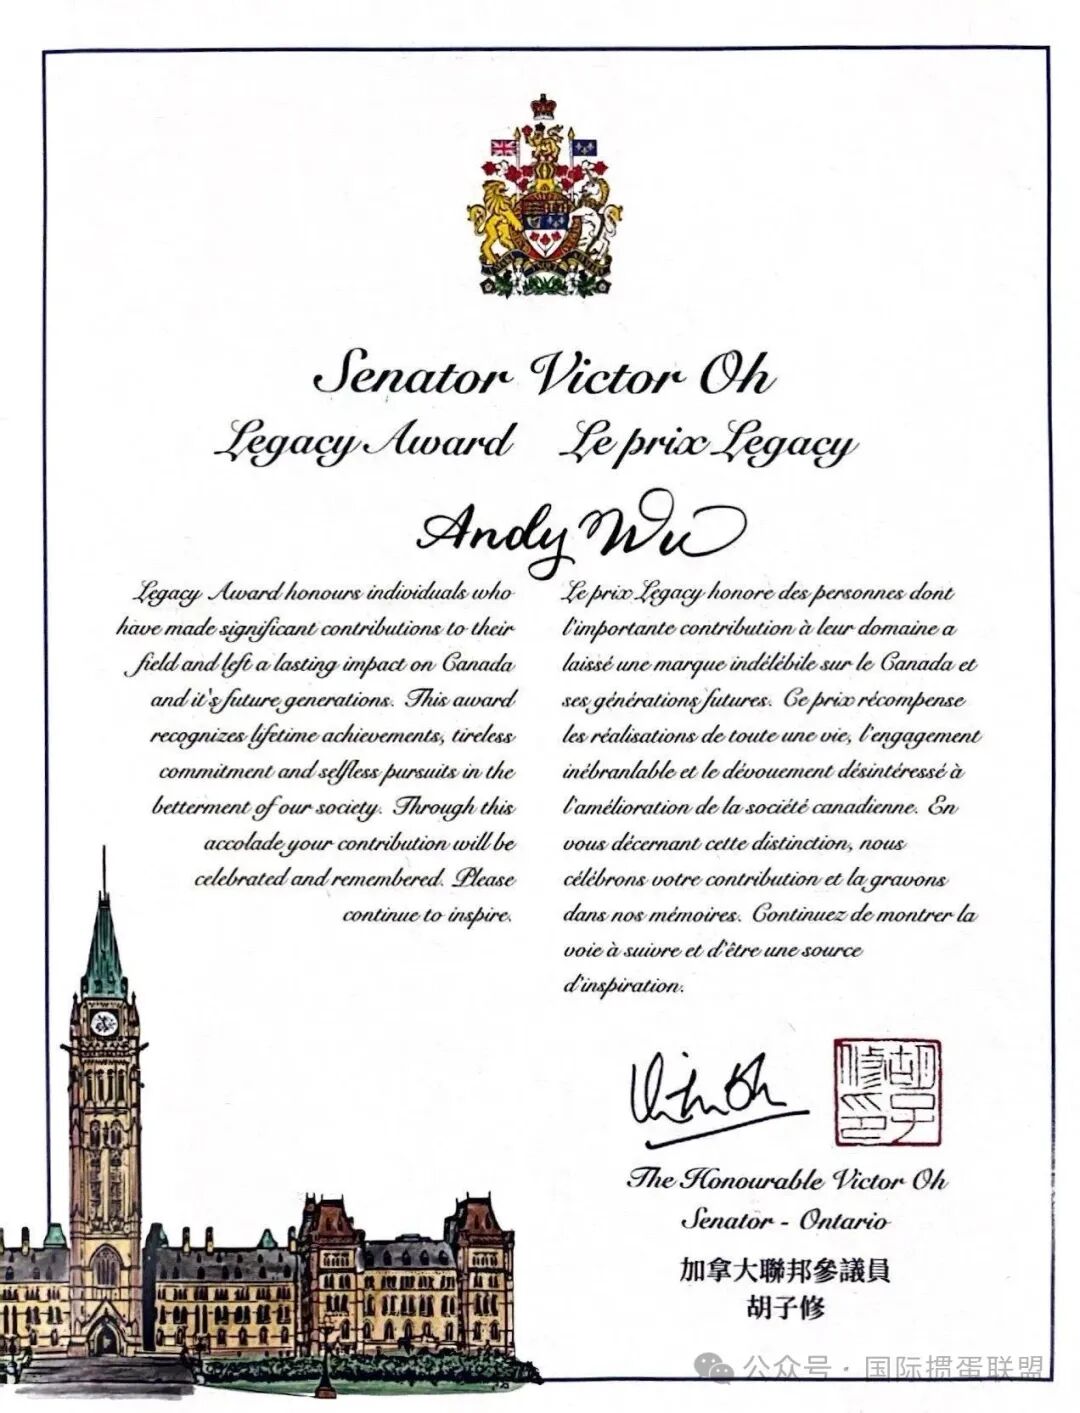 Senator Victor Oh
Legacy Award
Le prix Legacy
Andy Wu
Legacy Award honours individuals who
have made significant contributions to their
field and left a lasting impact on Canada
and it's future generations. This award
recognizes lifetime achievements, tireless
commitment and selfless pursuits in the
betterment of our society. Through this
accolade your contribution will be
celebrated and remembered. Please
continue to inspire.
Le prix Legacy honore des personnes dont
l'importante contribution à leur domaine a
laissé une marque indélébile sur le Canada et
ses générations futures. Ce prix récompense
les réalisations de toute une vie, l'engagement
inébranlable et le dévouement désintéressé à
l'amélioration de la société canadienne. En
vous décernant cette distinction, nous
célébrons votre contribution et la gravons
dans nos mémoires. Continuez de montrer la
voie à suivre et d'être une source
d'inspiration.
Victor Oh
胡子修印
The Honourable Victor Oh
Senator - Ontario
加拿大聯邦參議員
胡子修
公众号 · 国际掼蛋联盟